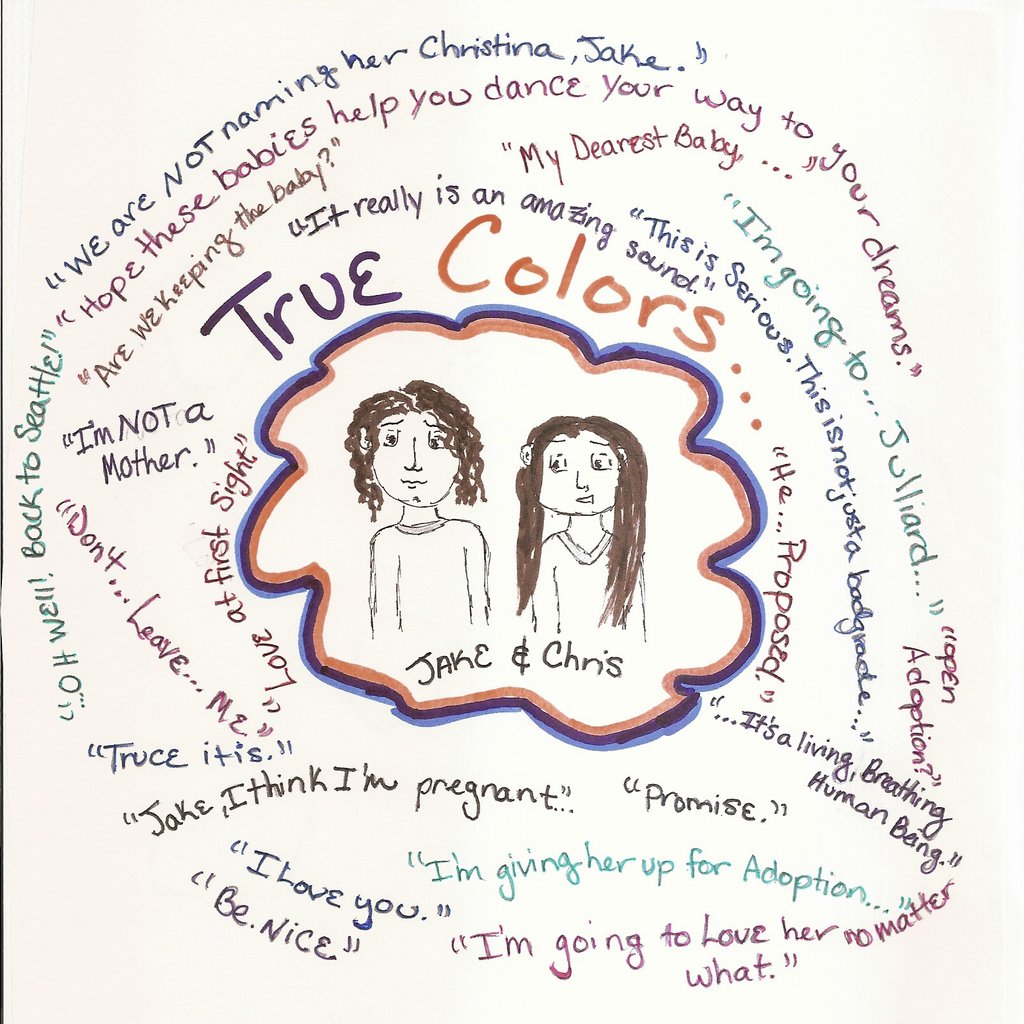 "We are NOT naming her Christina, Jake."
"Hope these babies help you dance your way to your dreams."
"Are we keeping the baby?"
"My Dearest Baby, ..."
"It really is an amazing sound."
"This is Serious. This is not just a bad grade..."
"I'm going to... Julliard..."
True Colors...
"...OH well! Back to Seattle!"
"I'm NOT a
Mother."
"Love at first sight"
"Don't... Leave... Me"
"He... Proposed!"
"open
Adoption?"
JAKE & Chris
"...It's a living, Breathing
Human Being."
"Truce it is."
"Jake, I think I'm pregnant..."
"Promise."
"I Love you."
"Be. Nice"
"I'm giving her up for Adoption..."
"I'm going to Love her no matter
what."